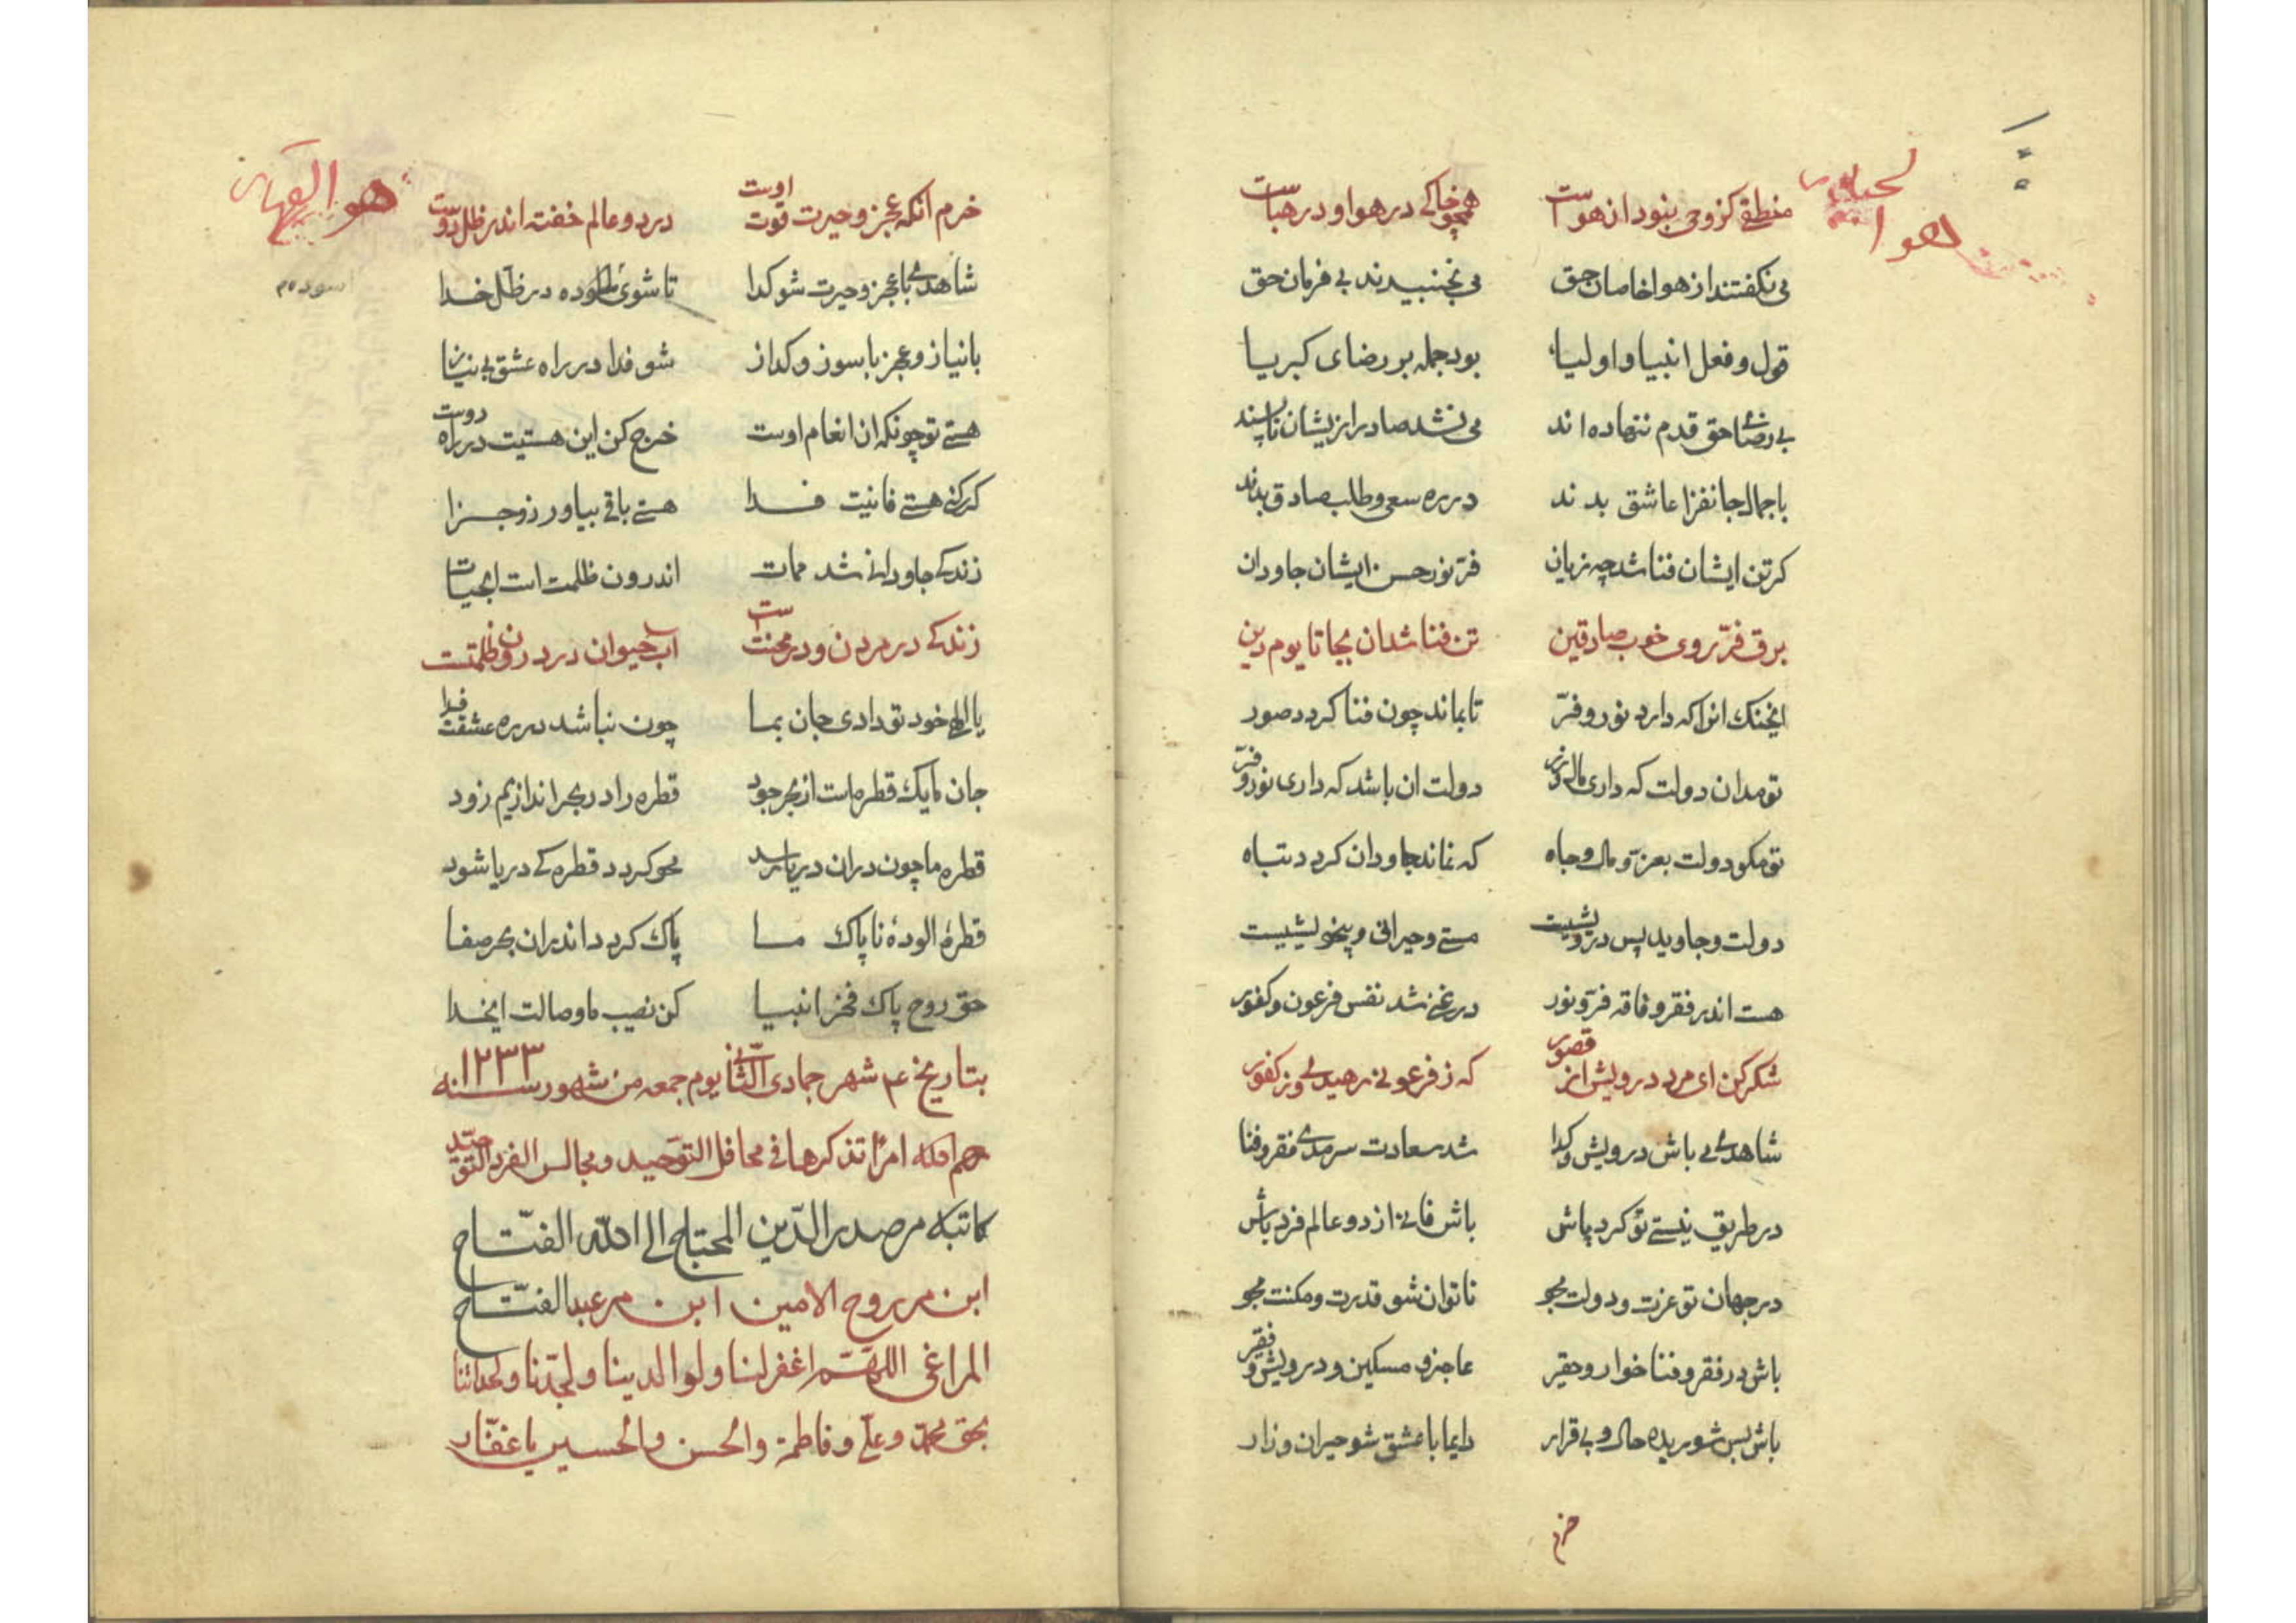 هو الجبار
منطقی کز وحی بنود از هواست همچو خاکی در هوا و در هباست
می نکفتند از هوا خاصان حق می نجنبیدند بی فرمان حق
قول و فعل انبیا و اولیا بود جمله بر رضای کبریا
بی رضای حق قدم ننهاده اند می نشد صادر ازیشان ناپسند
با جمال جانفزا عاشق بدند در ره سعی و طلب صادق بدند
کر تن ایشان فنا شد چه زیان فرّ نور حسن ایشان جاودان
برق فرّ روی خوب صادقین تن فنا شد ان بجا تا یوم دین
اینخنک انرا که دارد نور و فرّ تا بماند چون فنا کردد صور
تو مدان دولت که داری مال و زر دولت ان باشد که داری نور و فرّ
تو مکو دولت بعزّ و مال و جاه که نماند جاودان کردد تباه
دولت و جاوید پس درویشیست مستی و حیرانی و بیخویشیست
هست اندر فقر و فاقه فرّ و نور در غنی شد نفس فرعون و کفور
شکر کن ای مرد درویش از قصور که ز فرعونی رهیدی وز کفور
شاهدی می باش درویش و کدا شد سعادت سرمدی فقر و فنا
در طریق نیستی تو کرد باش باش فانی از دو عالم فرد باش
در جهان تو عزت و دولت مجو ناتوان شو قدرت و مکنت مجو
باش در فقر و فنا خوار و حقیر عاجز و مسکین و درویش و فقیر
باش بس شوریده حال و بی قرار دایما با عشق شو حیران و زار
خرم
هو القهار
خرم انکه عجز و حیرت قوت اوست در دو عالم خفته اندر ظل دوست
شاهدی با عجز و حیرت شو کدا تا شوی اسوده در ظلّ خدا
اسوده م
با نیاز و عجز با سوز و کداز شو فدا در راه عشق بی نیاز
هستی تو چونکه ان انعام اوست خرج کن این هستیت در راه دوست
کر کنی هستی فانیت فدا هستی باقی بیاور زو جزا
زندکی جاودانی شد ممات اندرون ظلمت است ابحیات
زندکی در مردن و در محنتست اب حیوان در درون ظلمتست
یا الهی خود تو دادی جان بما چون نباشد در ره عشقت فدا
جان ما یک قطره است از بحر جود قطره را در بحر اندازیم زود
قطره ما چون در ان دریا رسد محو کردد قطره کی دریا شود
قطرهٔ الودهٔ ناپاک ما پاک کردد اندران بحر صفا
حق روح پاک فخر انبیا کن نصیب ما وصالت ایخدا
بتاریخ ۴ شهر جمادی الثّانی یوم جمعه من شهور سنه ۱۲۳۳
رحم الله امرًا تذکرها فی محافل التوحید و مجالس الفرد التوحید
کاتبه میر صدر الدّین المحتاج الی الله الفتّاح
ابن میر روح الامین ابن میر عبد الفتّاح
المراغی اللهّم اغفر لنا ولوالدینا ولجدّنا ولجداتنا
بحق محمّد وعلیّ وفاطمة والحسن والحسین یا غفّار